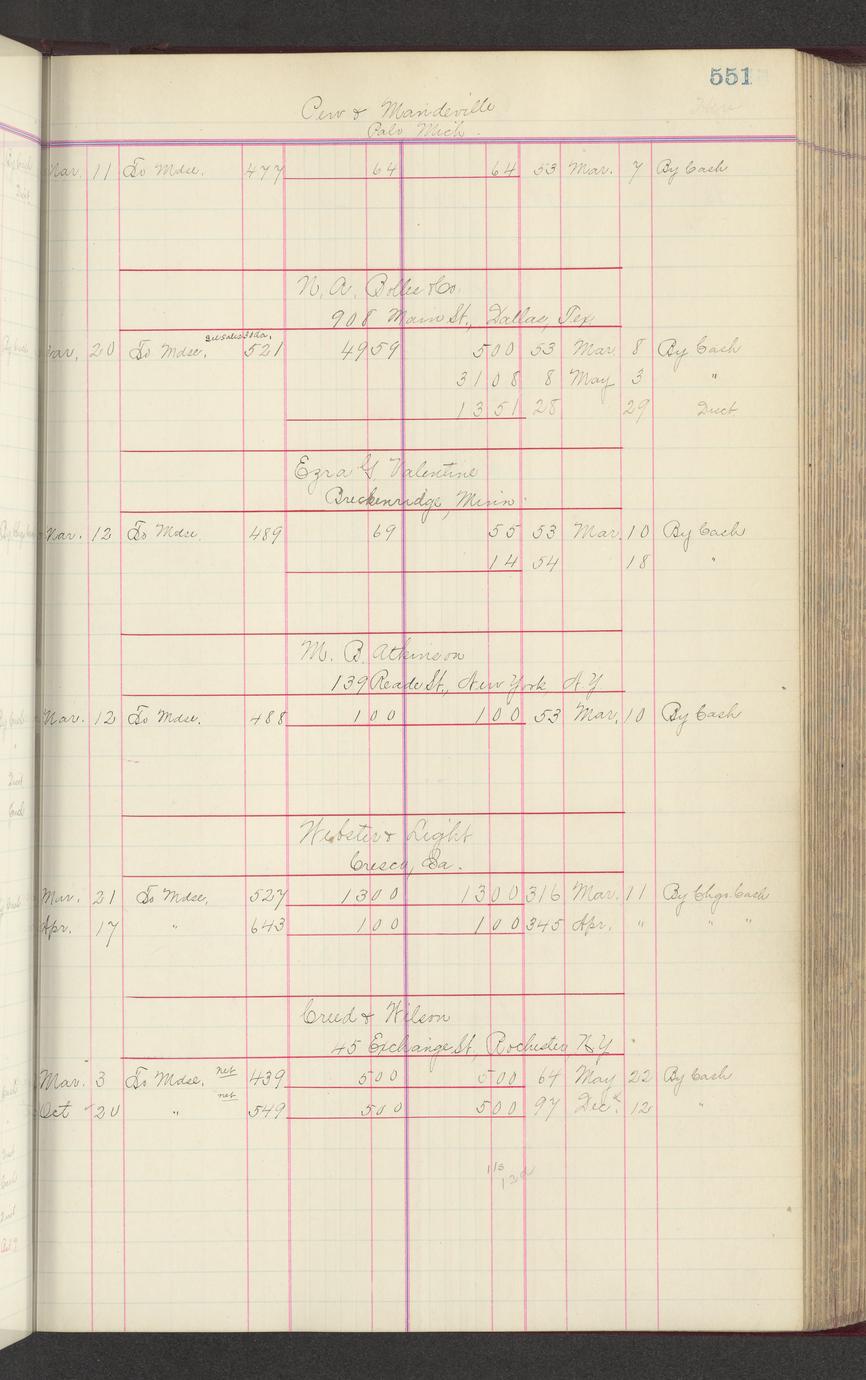 551
Pew & Mandeville
Palo Mich.
Mar. 11 To Mdse. 477 64 64 53 Mar. 7 By Cash
N. A. Bolles & Co.
908 Main St., Dallas, Tex.
Mar. 20 To Mdse. 30 da. 521 4959 500 53 Mar 8 By Cash
3108 8 May 3 "
1351 28 29 Disct.
Ezra G Valentine
Breckenridge, Minn.
Mar. 12 To Mdse. 489 69 55 53 Mar. 10 By Cash
14 54 18 "
M. B. Atkinson
139 Reade St., New York N Y
Mar. 12 To Mdse. 488 100 100 53 Mar. 10 By Cash
Webster & Light
Cresco, Ia.
Mar. 21 To Mdse. 527 1300 1300 316 Mar. 11 By Chgs. Cash
Apr. 17 " 643 100 100 345 Apr. " " "
Creed & Wilson
45 Exchange St., Rochester N Y
Mar. 3 To Mdse. net 439 500 500 64 May 22 By Cash
Oct 20 " net 549 500 500 97 Dec. 12 "